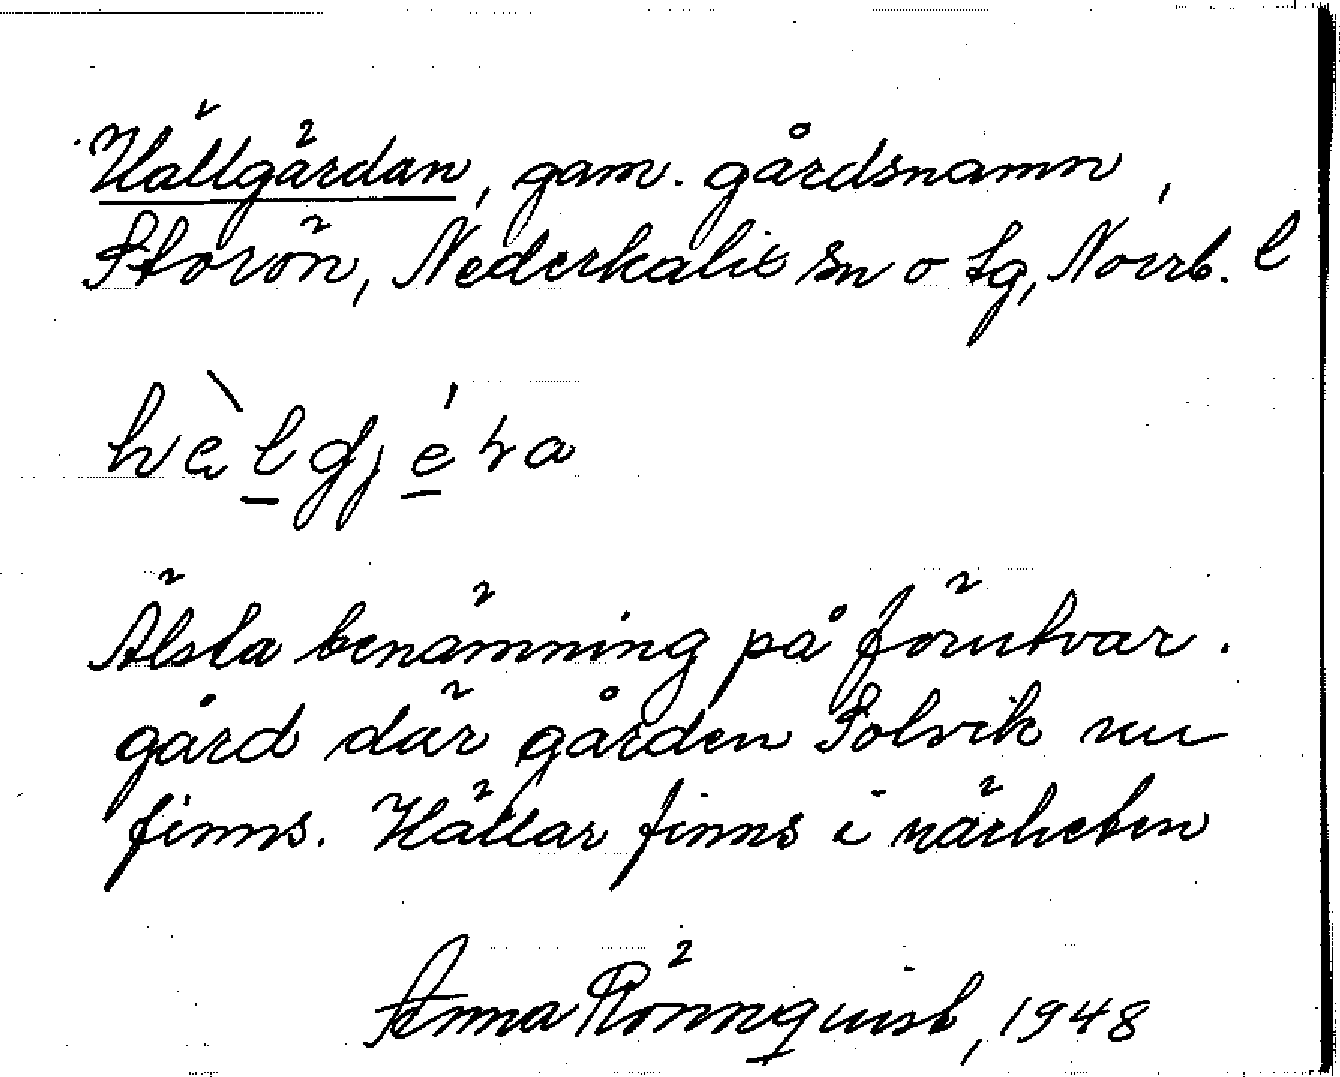 Hällgärdan, gam. gårdsnamn,
Storön, Nederkalix sn o tg, Norrb. l
Älsta benämning på förutvar.
gård där gården Solvik nu
finns. Hällar finns i närheten
Anna Rönnquist, 1948